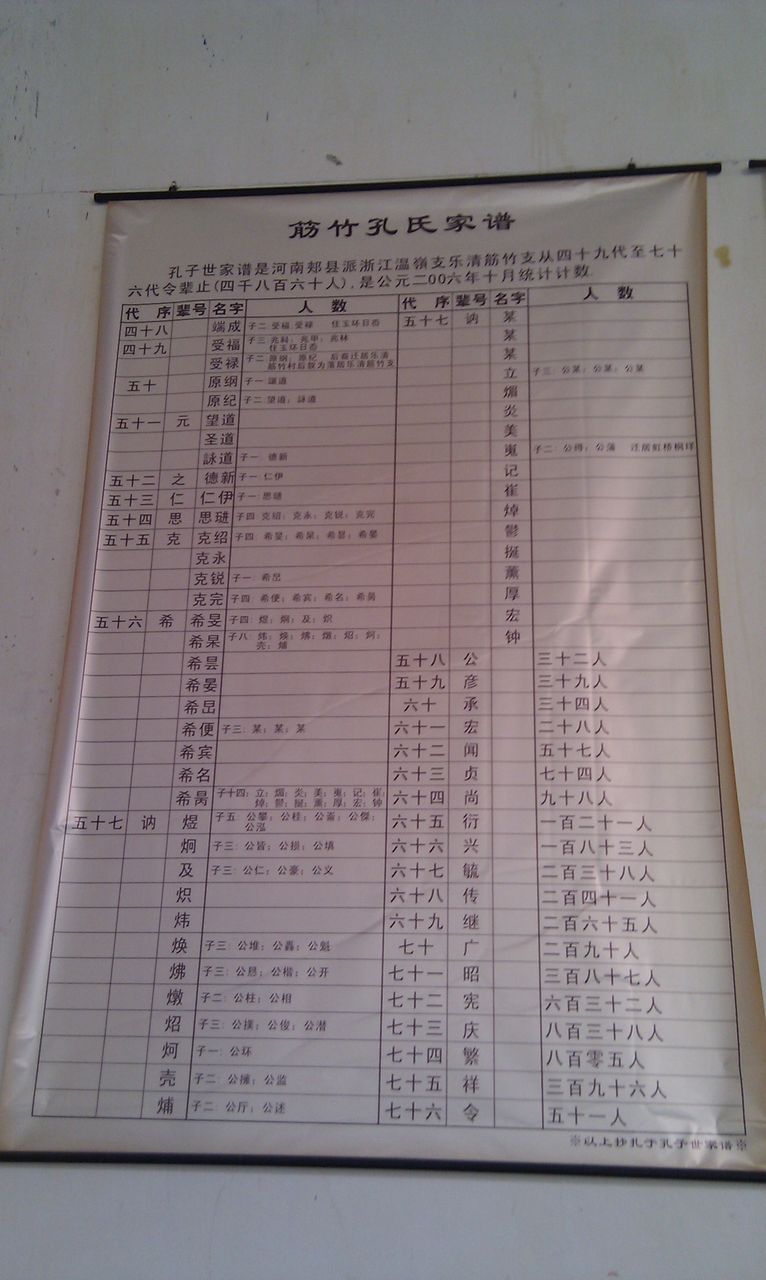 筋竹孔氏家谱
孔子世家谱是河南郏县派浙江温嶺支乐清筋竹支从四十九代至七十
六代令辈止(四千八百六十人),是公元二00六年十月统计计数
代 序 辈号 名字 人 数
四十八 端成 子二 受福 受禄 住玉环日岙
四十九 受福 子三 兆科; 兆甲; 兆林
住玉环日岙
受禄 子二 原纲; 原纪 后裔迁居乐清
筋竹村后叙为落居乐清筋竹支
五十 原纲 子一 讓道
原纪 子二 望道; 詠道
五十一 元 望道
圣道
詠道 子一 德新
五十二 之 德新 子一 仁伊
五十三 仁 仁伊 子一 思琎
五十四 思 思琎 子四 克绍; 克永; 克锐; 克完
五十五 克 克绍 子四 希旻; 希杲; 希昙; 希晏
克永
克锐 子一 希昆
克完 子四: 希便; 希宾; 希名; 希昺
五十六 希 希旻 子四: 煜; 炯; 及; 炽
希杲 子八: 炜; 焕; 炥; 燉; 炤; 炣;
壳; 烳
希昙
希晏
希便 子三: 某; 某; 某
希宾
希名
希昺 子十四; 立; 煝; 炎; 美; 嵬; 记; 崔;
焯; 鬱; 挻; 薰; 厚; 宏; 钟
五十七 讷 煜 子五 公攀; 公桂; 公崙; 公傑;
公泓
炯 子三: 公皆; 公损; 公填
及 子三: 公仁; 公豪; 公义
炽
炜
焕 子三: 公堆; 公轟; 公魁
炥 子三: 公恳; 公楷; 公开
燉 子二: 公柱; 公相
炤 子三: 公撲; 公俊; 公潜
炣 子一: 公环
壳 子二: 公摊; 公监
烳 子二: 公厅; 公述
代 序 辈号 名字 人 数
五十七 讷 某
某
某
立 子三: 公某; 公某; 公某
煝
炎
美
嵬 子二: 公樽; 公蒲 迁居虹桥桐垟
记
崔
焯
鬱
挻
薰
厚
宏
钟
五十八 公 三十二人
五十九 彦 三十九人
六十 承 三十四人
六十一 宏 二十八人
六十二 闻 五十七人
六十三 贞 七十四人
六十四 尚 九十八人
六十五 衍 一百二十一人
六十六 兴 一百八十三人
六十七 毓 二百三十八人
六十八 传 二百四十一人
六十九 继 二百六十五人
七十 广 二百九十人
七十一 昭 三百八十七人
七十二 宪 六百三十二人
七十三 庆 八百三十八人
七十四 繁 八百零五人
七十五 祥 三百九十六人
七十六 令 五十一人
※以上抄扎于孔子世家谱※